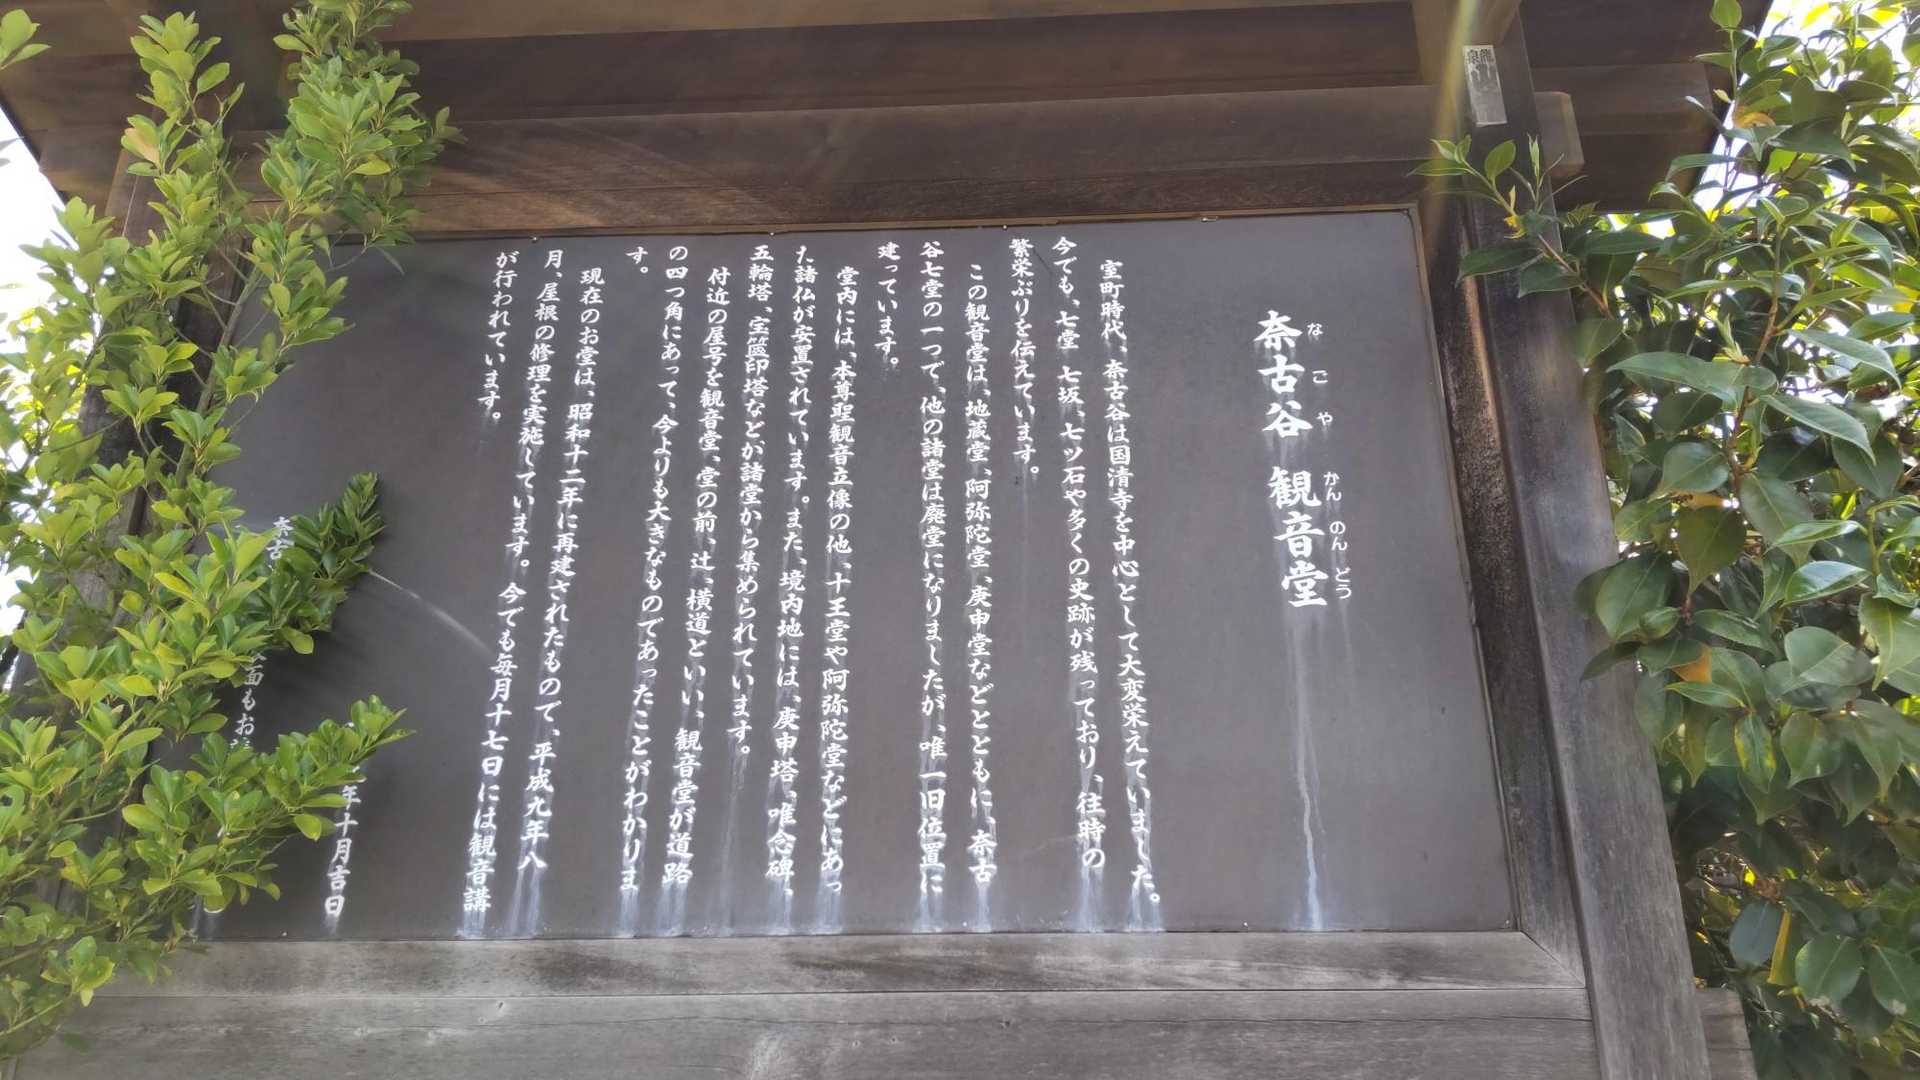 奈古谷 観音堂
なごや かんのんどう
室町時代、奈古谷は国清寺を中心として大変栄えていました。
今でも、七堂 七坂、七ツ石や多くの史跡が残っており、往時の
繁栄ぶりを伝えています。
この観音堂は、地蔵堂、阿弥陀堂、庚申堂などとともに、奈古
谷七堂の一つで、他の諸堂は廃堂になりましたが、唯一旧位置に
建っています。
堂内には、本尊聖観音立像の他、十王堂や阿弥陀堂などにあっ
た諸仏が安置されています。また、境内地には、庚申塔、唯念碑、
五輪塔、宝篋印塔などが諸堂から集められています。
付近の屋号を観音堂、堂の前、辻、横道といい、観音堂が道路
の四つ角にあって、今よりも大きなものであったことがわかりま
す。
現在のお堂は、昭和十二年に再建されたもので、平成九年八
月、屋根の修理を実施しています。今でも毎月十七日には観音講
が行われています。
年十月吉日
面もお
奈古